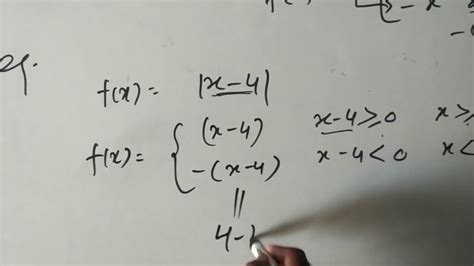 - x
eg.
f(x) = |x-4|
f(x) = { (x-4) x-4 ≥ 0 x ≥
-(x-4) x-4 < 0 x <
||
4-